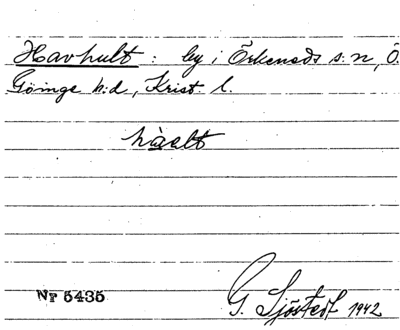 Havhult : by i Örkeneds s:n, Ö.
Göinge h:d, Krist. l.
hàalt
Nr 5435
G. Sjöstedt 1942